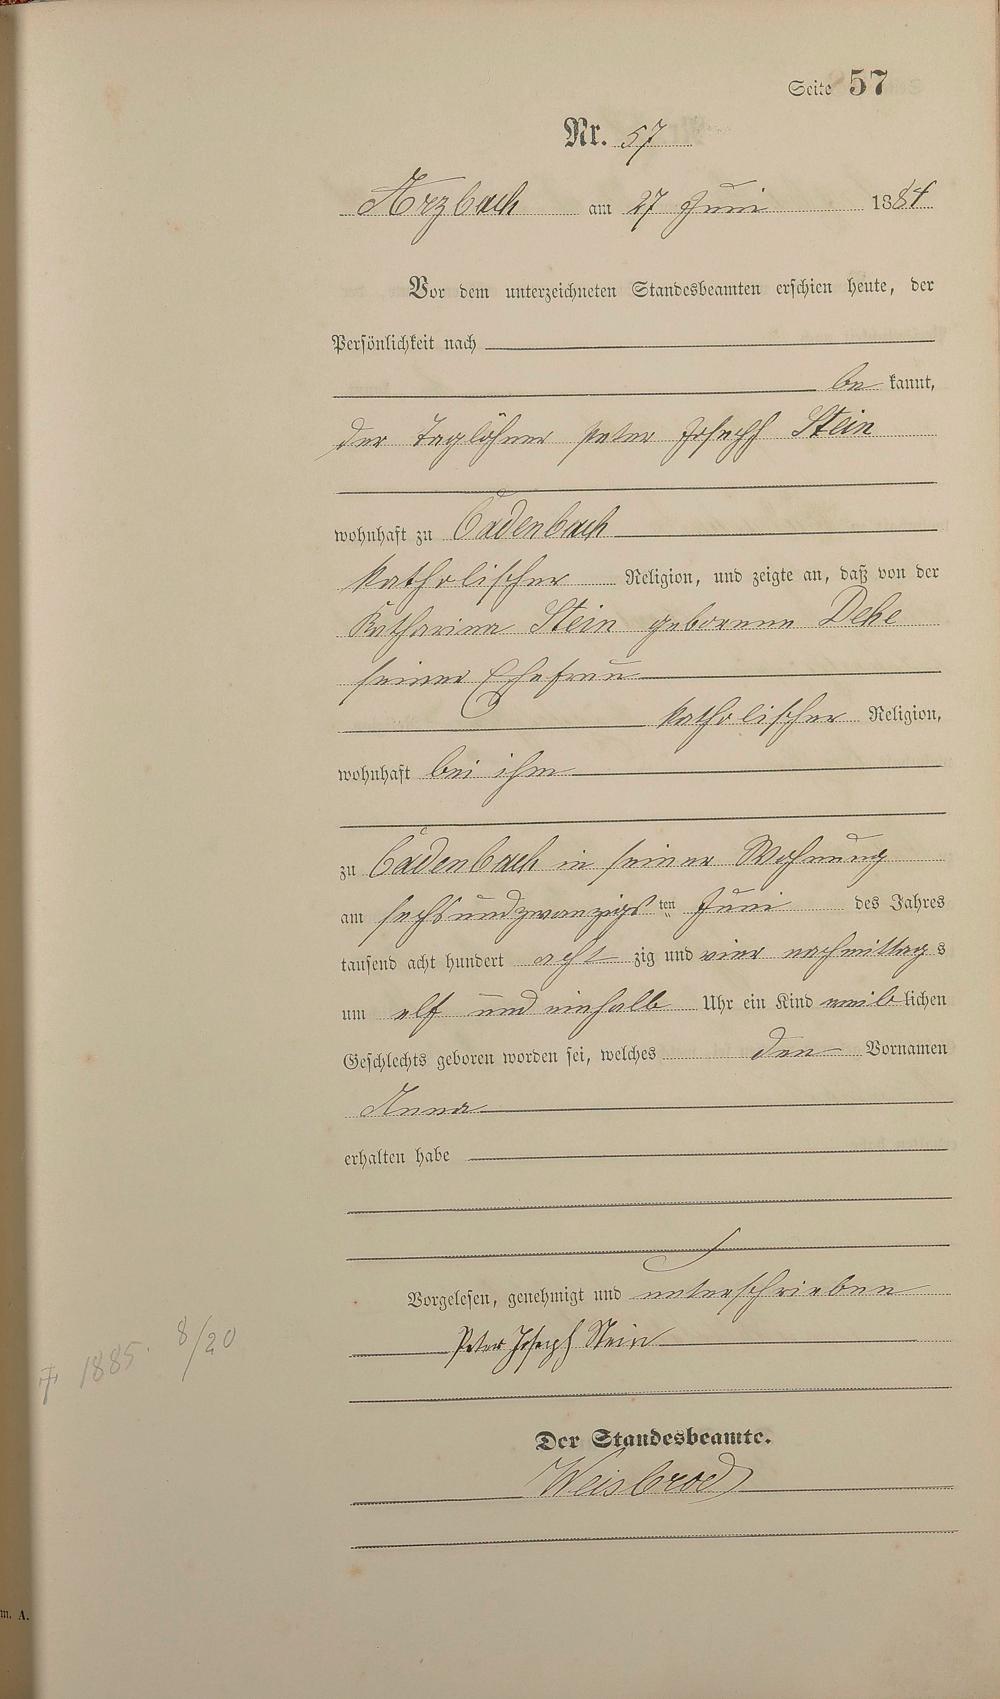 Seite 57
Nr. 57
Arzbach am 27 Juni 1884
Vor dem unterzeichneten Standesbeamten erschien heute, der
Persönlichkeit nach
be kannt,
der Taglöhner Peter Joseph Stein
wohnhaft zu Cadenbach
katholischer Religion, und zeigte an, daß von der
Katharina Stein geborenen Dehe
seiner Ehefrau
katholischer Religion,
wohnhaft bei ihm
zu Cadenbach in seiner Wohnung
am sechsundzwanzigs ten Juni des Jahres
tausend acht hundert acht zig und vier nachmittag s
um elf und einhalb Uhr ein Kind weib lichen
Geschlechts geboren worden sei, welches den Vornamen
Anna
erhalten habe
Vorgelesen, genehmigt und unterschrieben
Peter Joseph Stein
† 1885. 8/20
Der Standesbeamte.
Weisbrod
m. A.